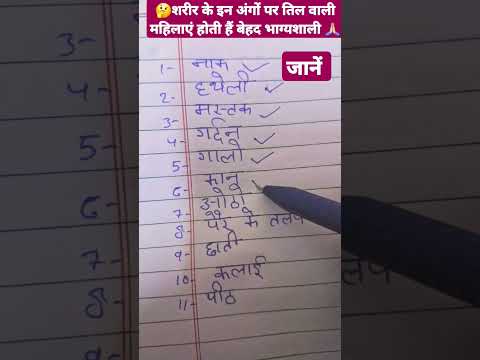 🤔शरीर के इन अंगों पर तिल वाली
महिलाएं होती हैं बेहद भाग्यशाली 🙏🏻
जानें
1- नाक ✓
2- हथेली ✓
3- मस्तक ✓
4- गर्दन ✓
5- गालो ✓
6- कान
7- ओठो
8- पैर के तलवे
9- छाती
10- कलाई
11- पीठ